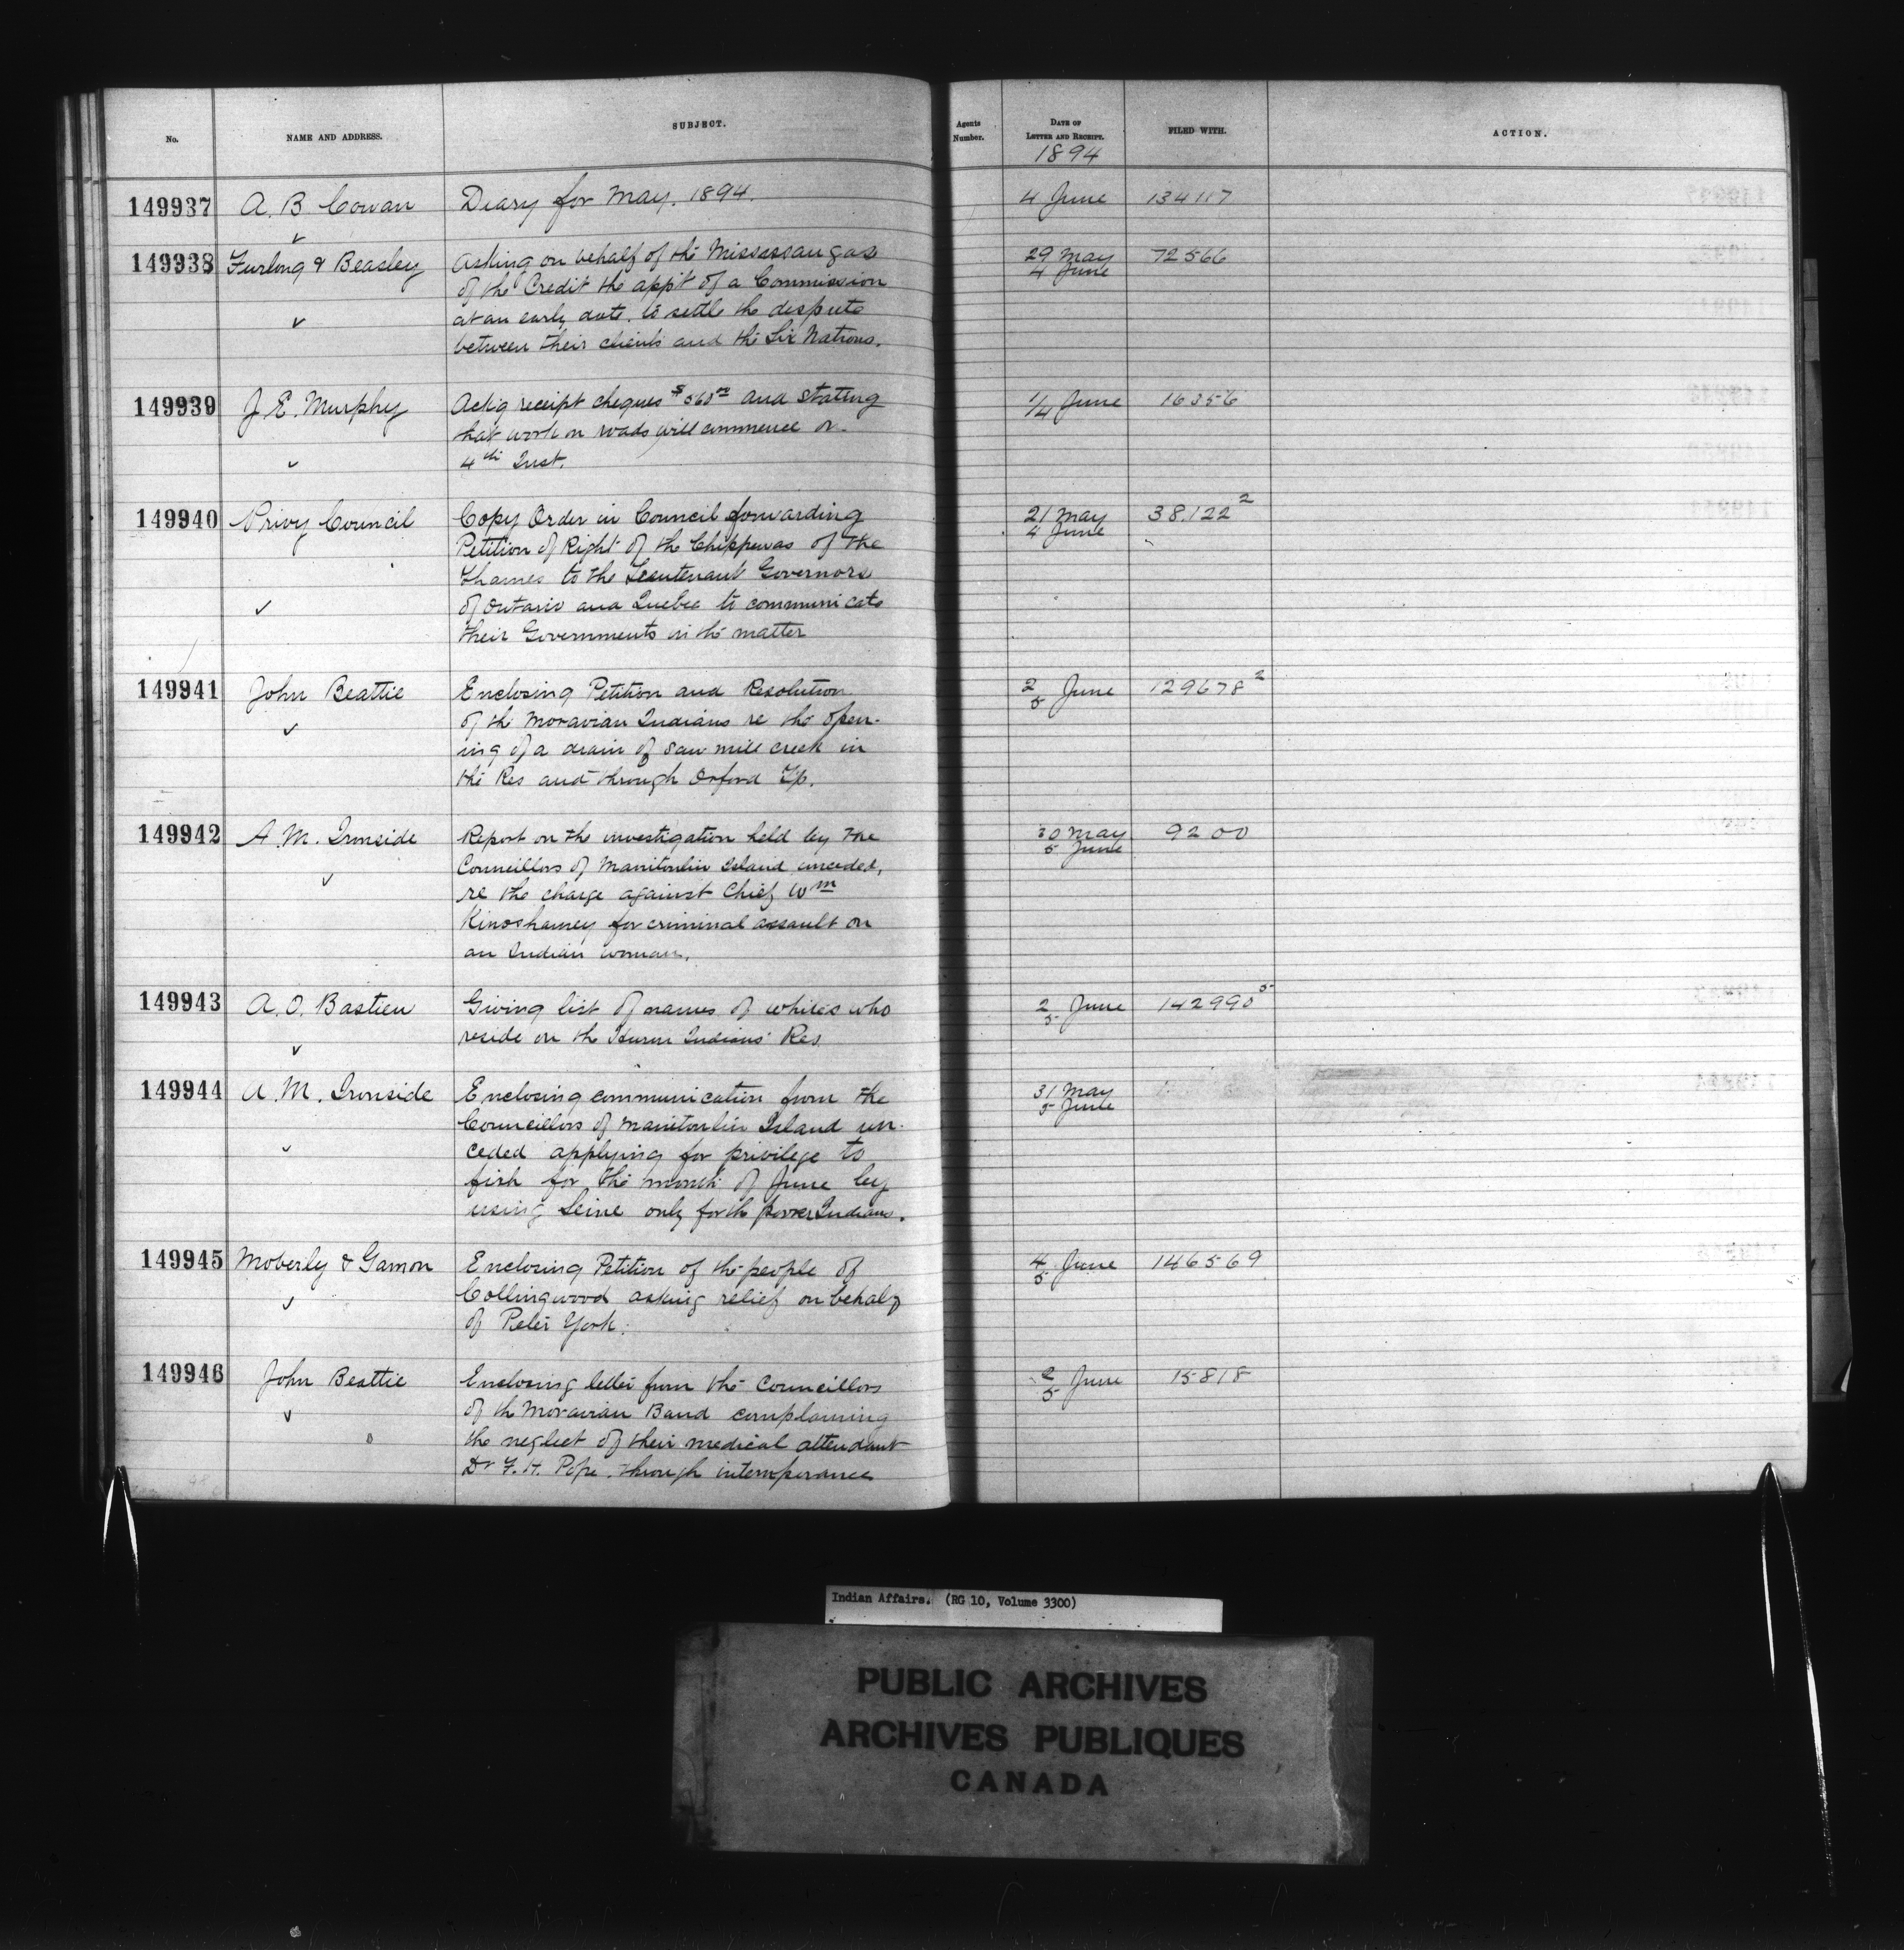 No. NAME AND ADDRESS. SUBJECT. Agents Number. DATE OF LETTER AND RECEIPT. FILED WITH. ACTION.
1894
149937 A. B. Cowan Diary for May. 1894. 4 June 134117
149938 Furlong & Beasley Asking on behalf of the Mississaugas 29 May 72566
of the Credit the app't of a Commission 4 June
at an early date. to settle the dispute
between their clients and the Six Nations.
149939 J. E. Murphy Ack'g receipt cheques $560 and stating 1/4 June 16356
that work on roads will commence on
4th Inst.
149940 Privy Council Copy Order in Council forwarding 21 May 38.122 2
Petition of Right of the Chippewas of the 4 June
Thames to the Lieutenant Governors
of Ontario and Quebec to communicate
their Governments in the matter
149941 John Beattie Enclosing Petition and Resolution 2/5 June 129678 2
of the Moravian Indians re the open-
ing of a drain of Saw mill creek in
the Res and through Orford Tp.
149942 A. M. Ironside Report on the investigation held by the 30 May 9200
Councillors of Manitoulin Island unceded, 5 June
re the charge against Chief Wm
Kinoshamey for criminal assault on
an Indian woman.
149943 A. O. Bastien Giving list of names of whites who 2/5 June 142990 5
reside on the Huron Indians' Res
149944 A. M. Ironside Enclosing communication from the 31 May
Councillors of Manitoulin Island un- 5 June
ceded applying for privilege to
fish for the month of June by
using Seine only for the poorer Indians.
149945 Moberly & Gamon Enclosing Petition of the people of 4/5 June 146569
Collingwood asking relief on behalf
of Peter York.
149946 John Beattie Enclosing letter from the Councillors 2/5 June 15818
of the Moravian Band complaining
the neglect of their medical attendant
Dr F. H. Pope. through intemperance
Indian Affairs. (RG 10, Volume 3300)
PUBLIC ARCHIVES
ARCHIVES PUBLIQUES
CANADA